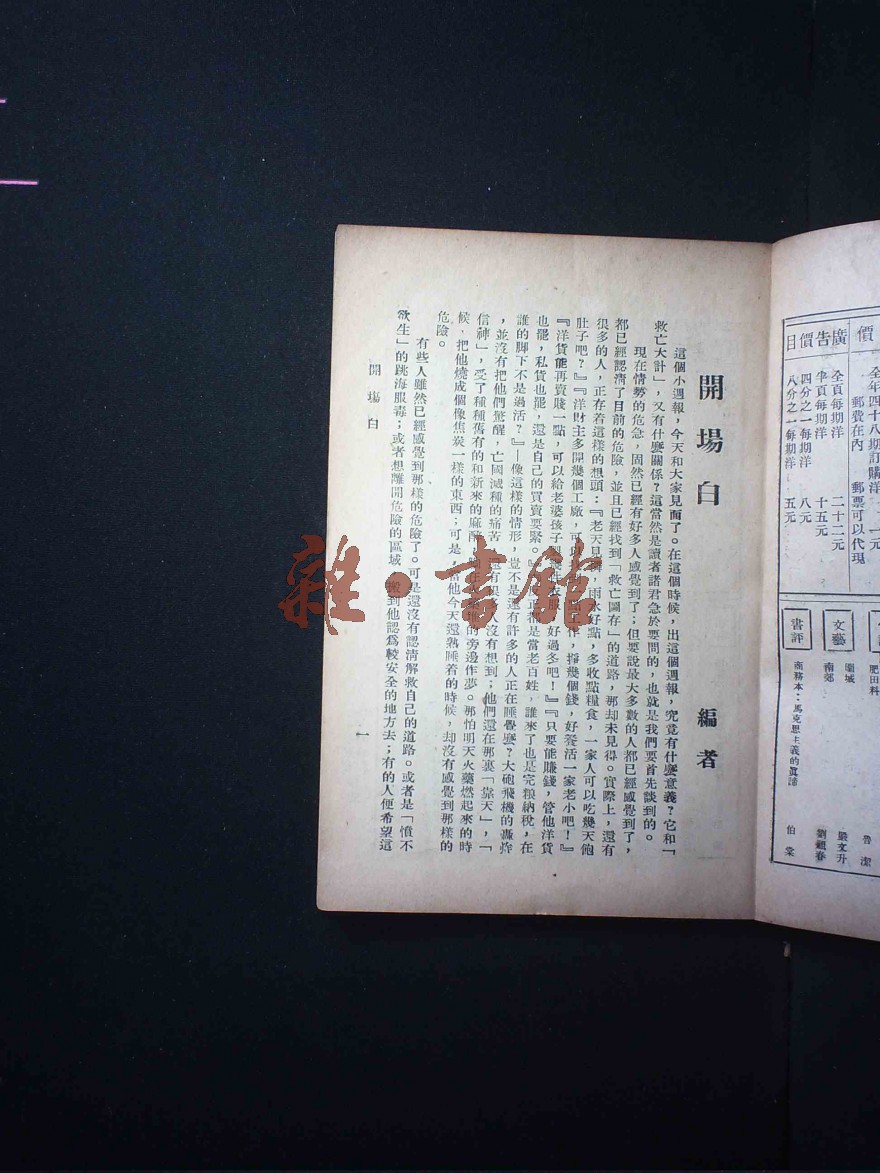 目價告廣
全頁每期洋 二十二元
半頁每期洋 十五元
四分之一每期洋 八元
八分之一每期洋 五元
價
全年四十八期訂購洋 一元
郵費在內 郵票可以代現
肥田料
文藝
南郊
嚴文升
書評
商務本：馬克思主義的眞諦 伯棠
開場白
編者
這個小週報，今天和大家見面了。在這個時候，出這個週報，究竟有什麼意義？它和「
救亡大計」，又有什麼關係？這當然是讀者諸君急於要問的，也就是我們要首先談到的。
現在情勢的危急，固然已經有好多人感覺到了；但要說最大多數的人都已經感覺到了，
都已經認清了目前的危險，並且已經找到「救亡圖存」的道路，那却未見得。實際上，還有
很多的人，正存着這樣的想頭：『老天見，雨水好點，多收點糧食，一家人可以吃幾天飽
肚子吧？』『洋財主多開幾個工廠，可以工作，掙幾個錢，好養活一家老小吧！』
『洋貨能再賣賤一點，可以給老婆孩子衣服，好過冬吧！』『只要能賺錢，管他洋貨
也罷，私貨也罷，還是自己的買賣要緊。』『正都是當老百姓，誰來了也是完粮納稅，在
誰的脚下不是過活？』—像這樣的情形，豈不是還有許多的人正在睡覺麼？大砲飛機的轟炸
，並沒有把他們驚醒，亡國滅種的痛苦，還有人沒有想到；他們還在那裏「靠天」，「
信神」，受了種種舊有的和新來的麻醉，的旁邊作夢。那怕明天火藥燃起來的時
候，把他燒成個像焦炭一樣的東西；可是，當他今天還熟睡着的時候，却沒有感覺到那樣的
危險。
有些人雖然已經感覺到那樣的危險了。可是還沒有認清解救自己的道路。或者是「憤不
欲生」的跳海服毒；或者想離開危險的區域，搬到他認爲較安全的地方去；有的人便希望這
開場白
一
雜·書館